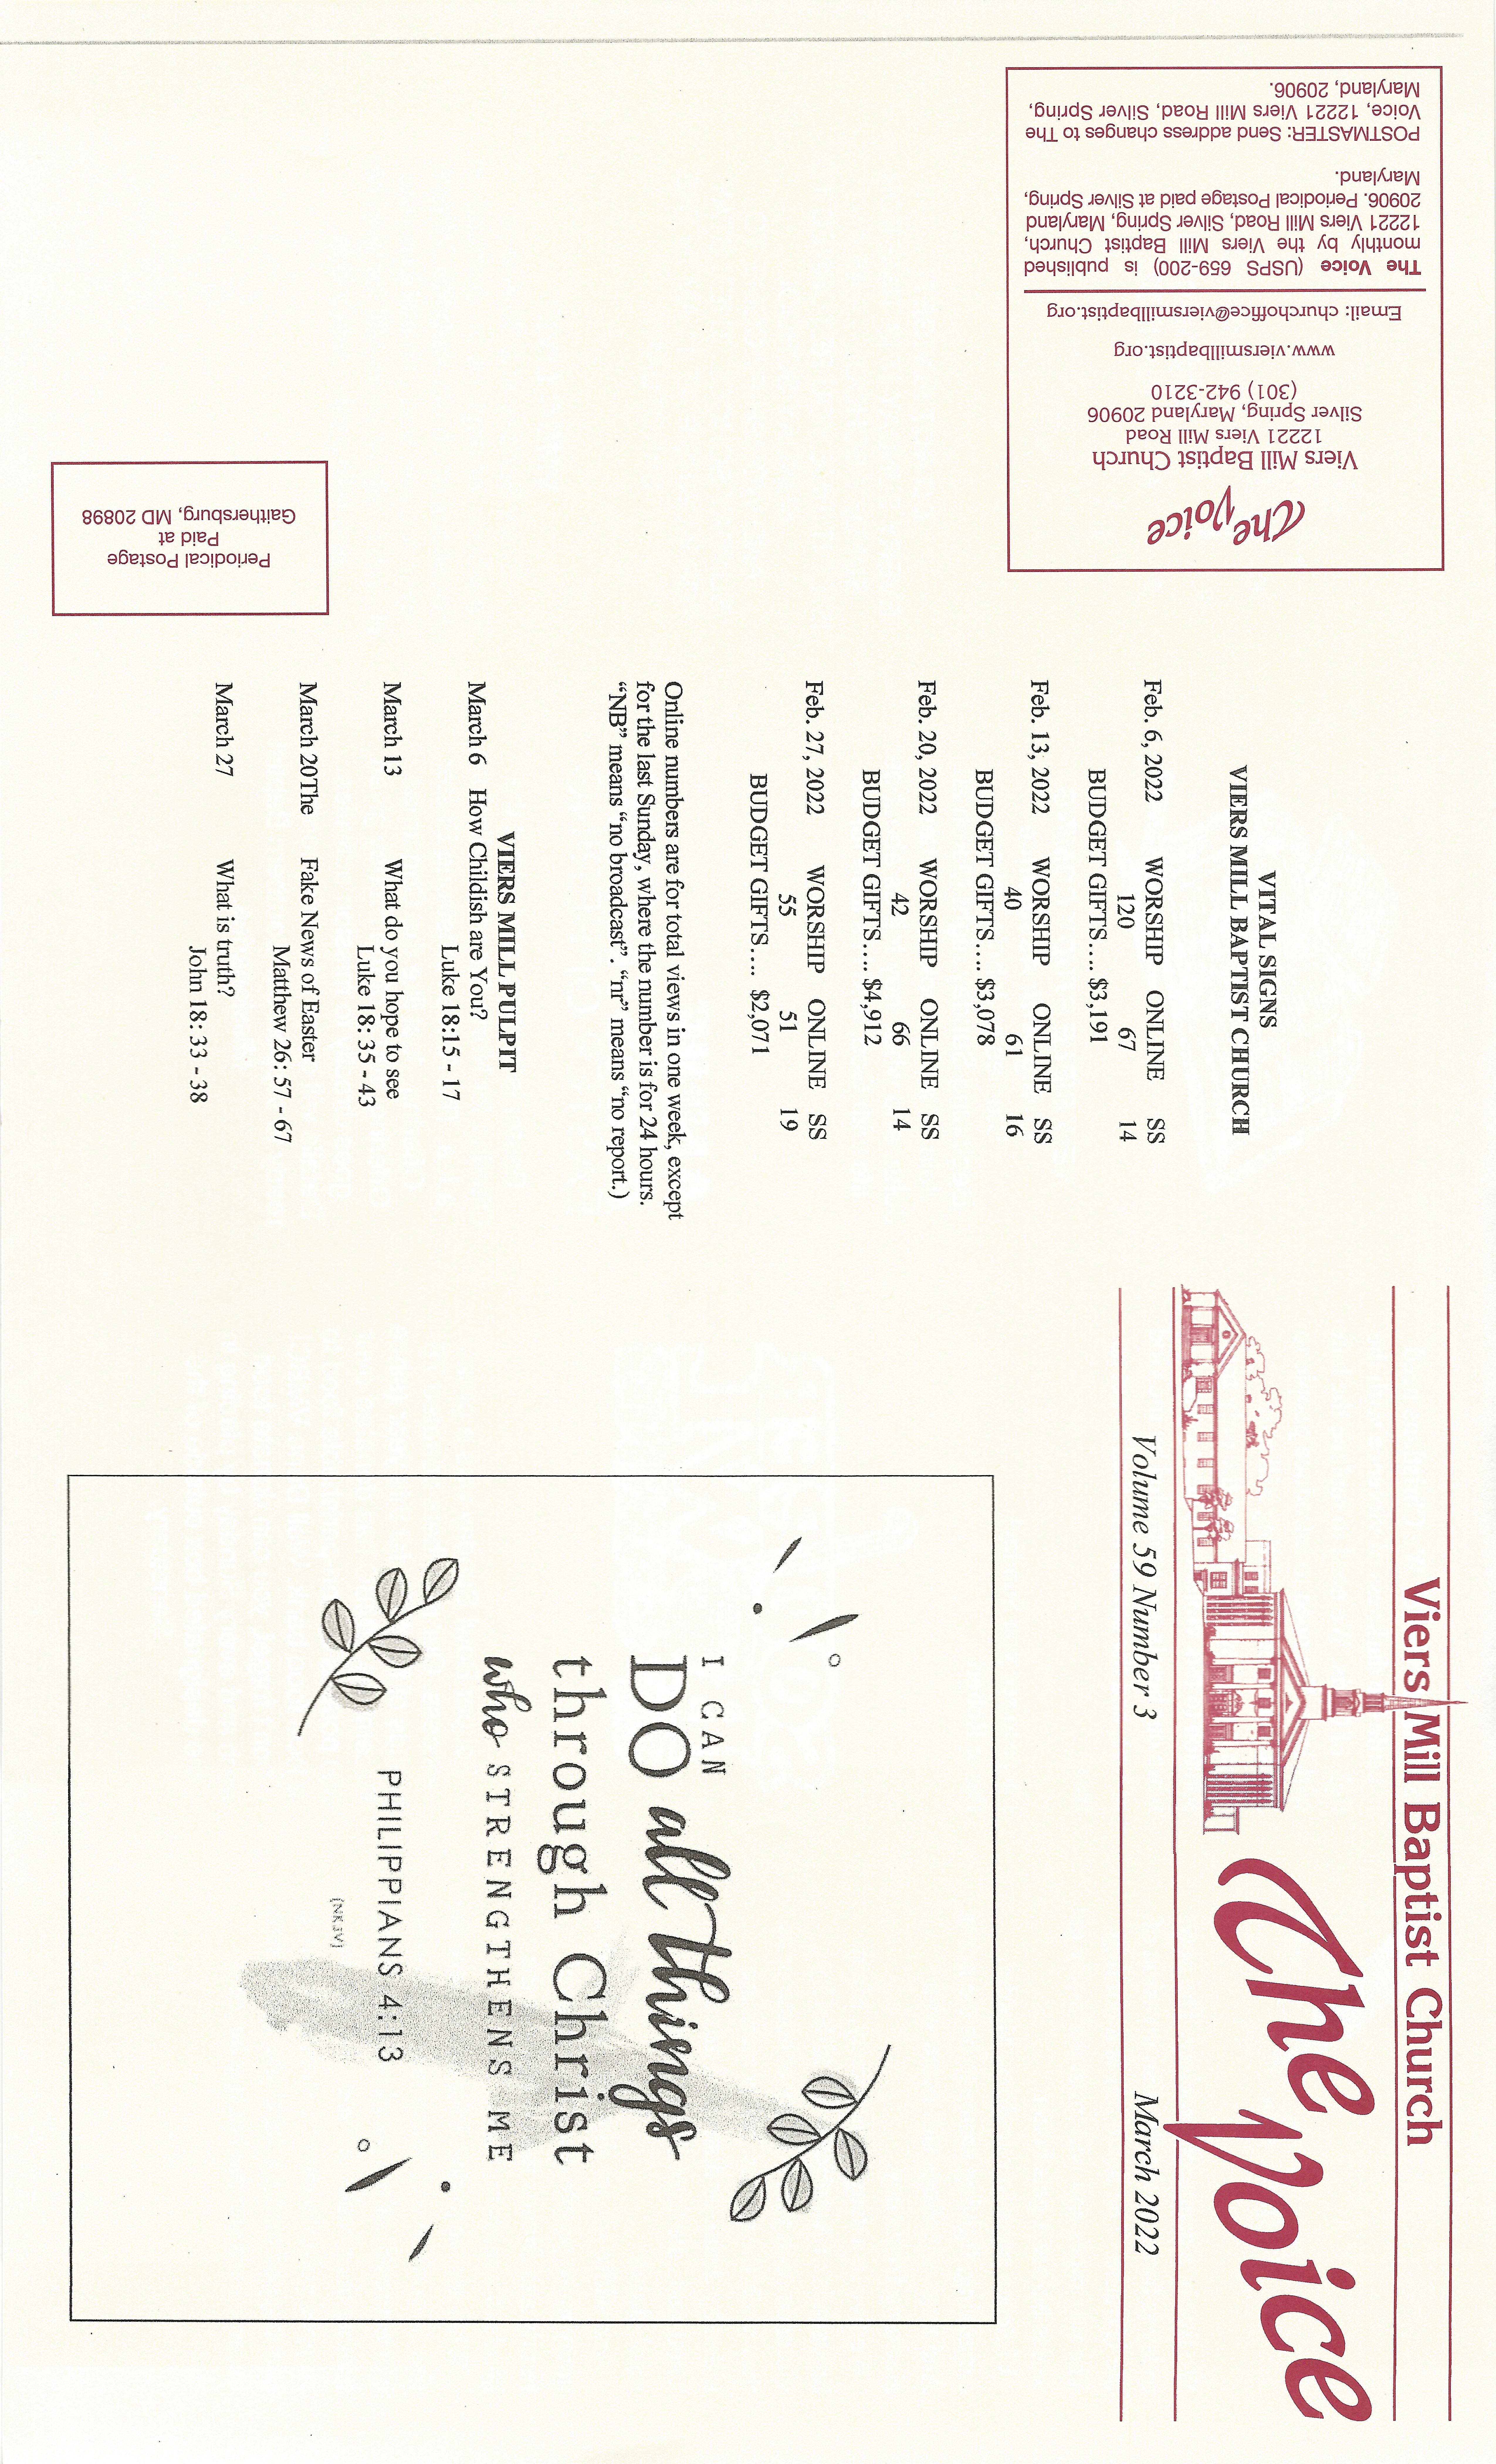 Viers Mill Baptist Church
The Voice
Volume 59 Number 3 March 2022
I CAN
DO all things
through Christ
who STRENGTHENS ME
PHILIPPIANS 4:13
(NKJV)
VITAL SIGNS
VIERS MILL BAPTIST CHURCH
Feb. 6, 2022 WORSHIP ONLINE SS
120 67 14
BUDGET GIFTS…. $3,191
Feb. 13, 2022 WORSHIP ONLINE SS
40 61 16
BUDGET GIFTS…. $3,078
Feb. 20, 2022 WORSHIP ONLINE SS
42 66 14
BUDGET GIFTS…. $4,912
Feb. 27, 2022 WORSHIP ONLINE SS
55 51 19
BUDGET GIFTS…. $2,071
Online numbers are for total views in one week, except
for the last Sunday, where the number is for 24 hours.
“NB” means “no broadcast”. “nr” means “no report.)
VIERS MILL PULPIT
March 6 How Childish are You?
Luke 18:15 - 17
March 13 What do you hope to see
Luke 18: 35 - 43
March 20The Fake News of Easter
Matthew 26: 57 - 67
March 27 What is truth?
John 18: 33 - 38
The Voice
Viers Mill Baptist Church
12221 Viers Mill Road
Silver Spring, Maryland 20906
(301) 942-3210
www.viersmillbaptist.org
Email: churchoffice@viersmillbaptist.org
The Voice (USPS 659-200) is published
monthly by the Viers Mill Baptist Church,
12221 Viers Mill Road, Silver Spring, Maryland
20906. Periodical Postage paid at Silver Spring,
Maryland.
POSTMASTER: Send address changes to The
Voice, 12221 Viers Mill Road, Silver Spring,
Maryland, 20906.
Periodical Postage
Paid at
Gaithersburg, MD 20898